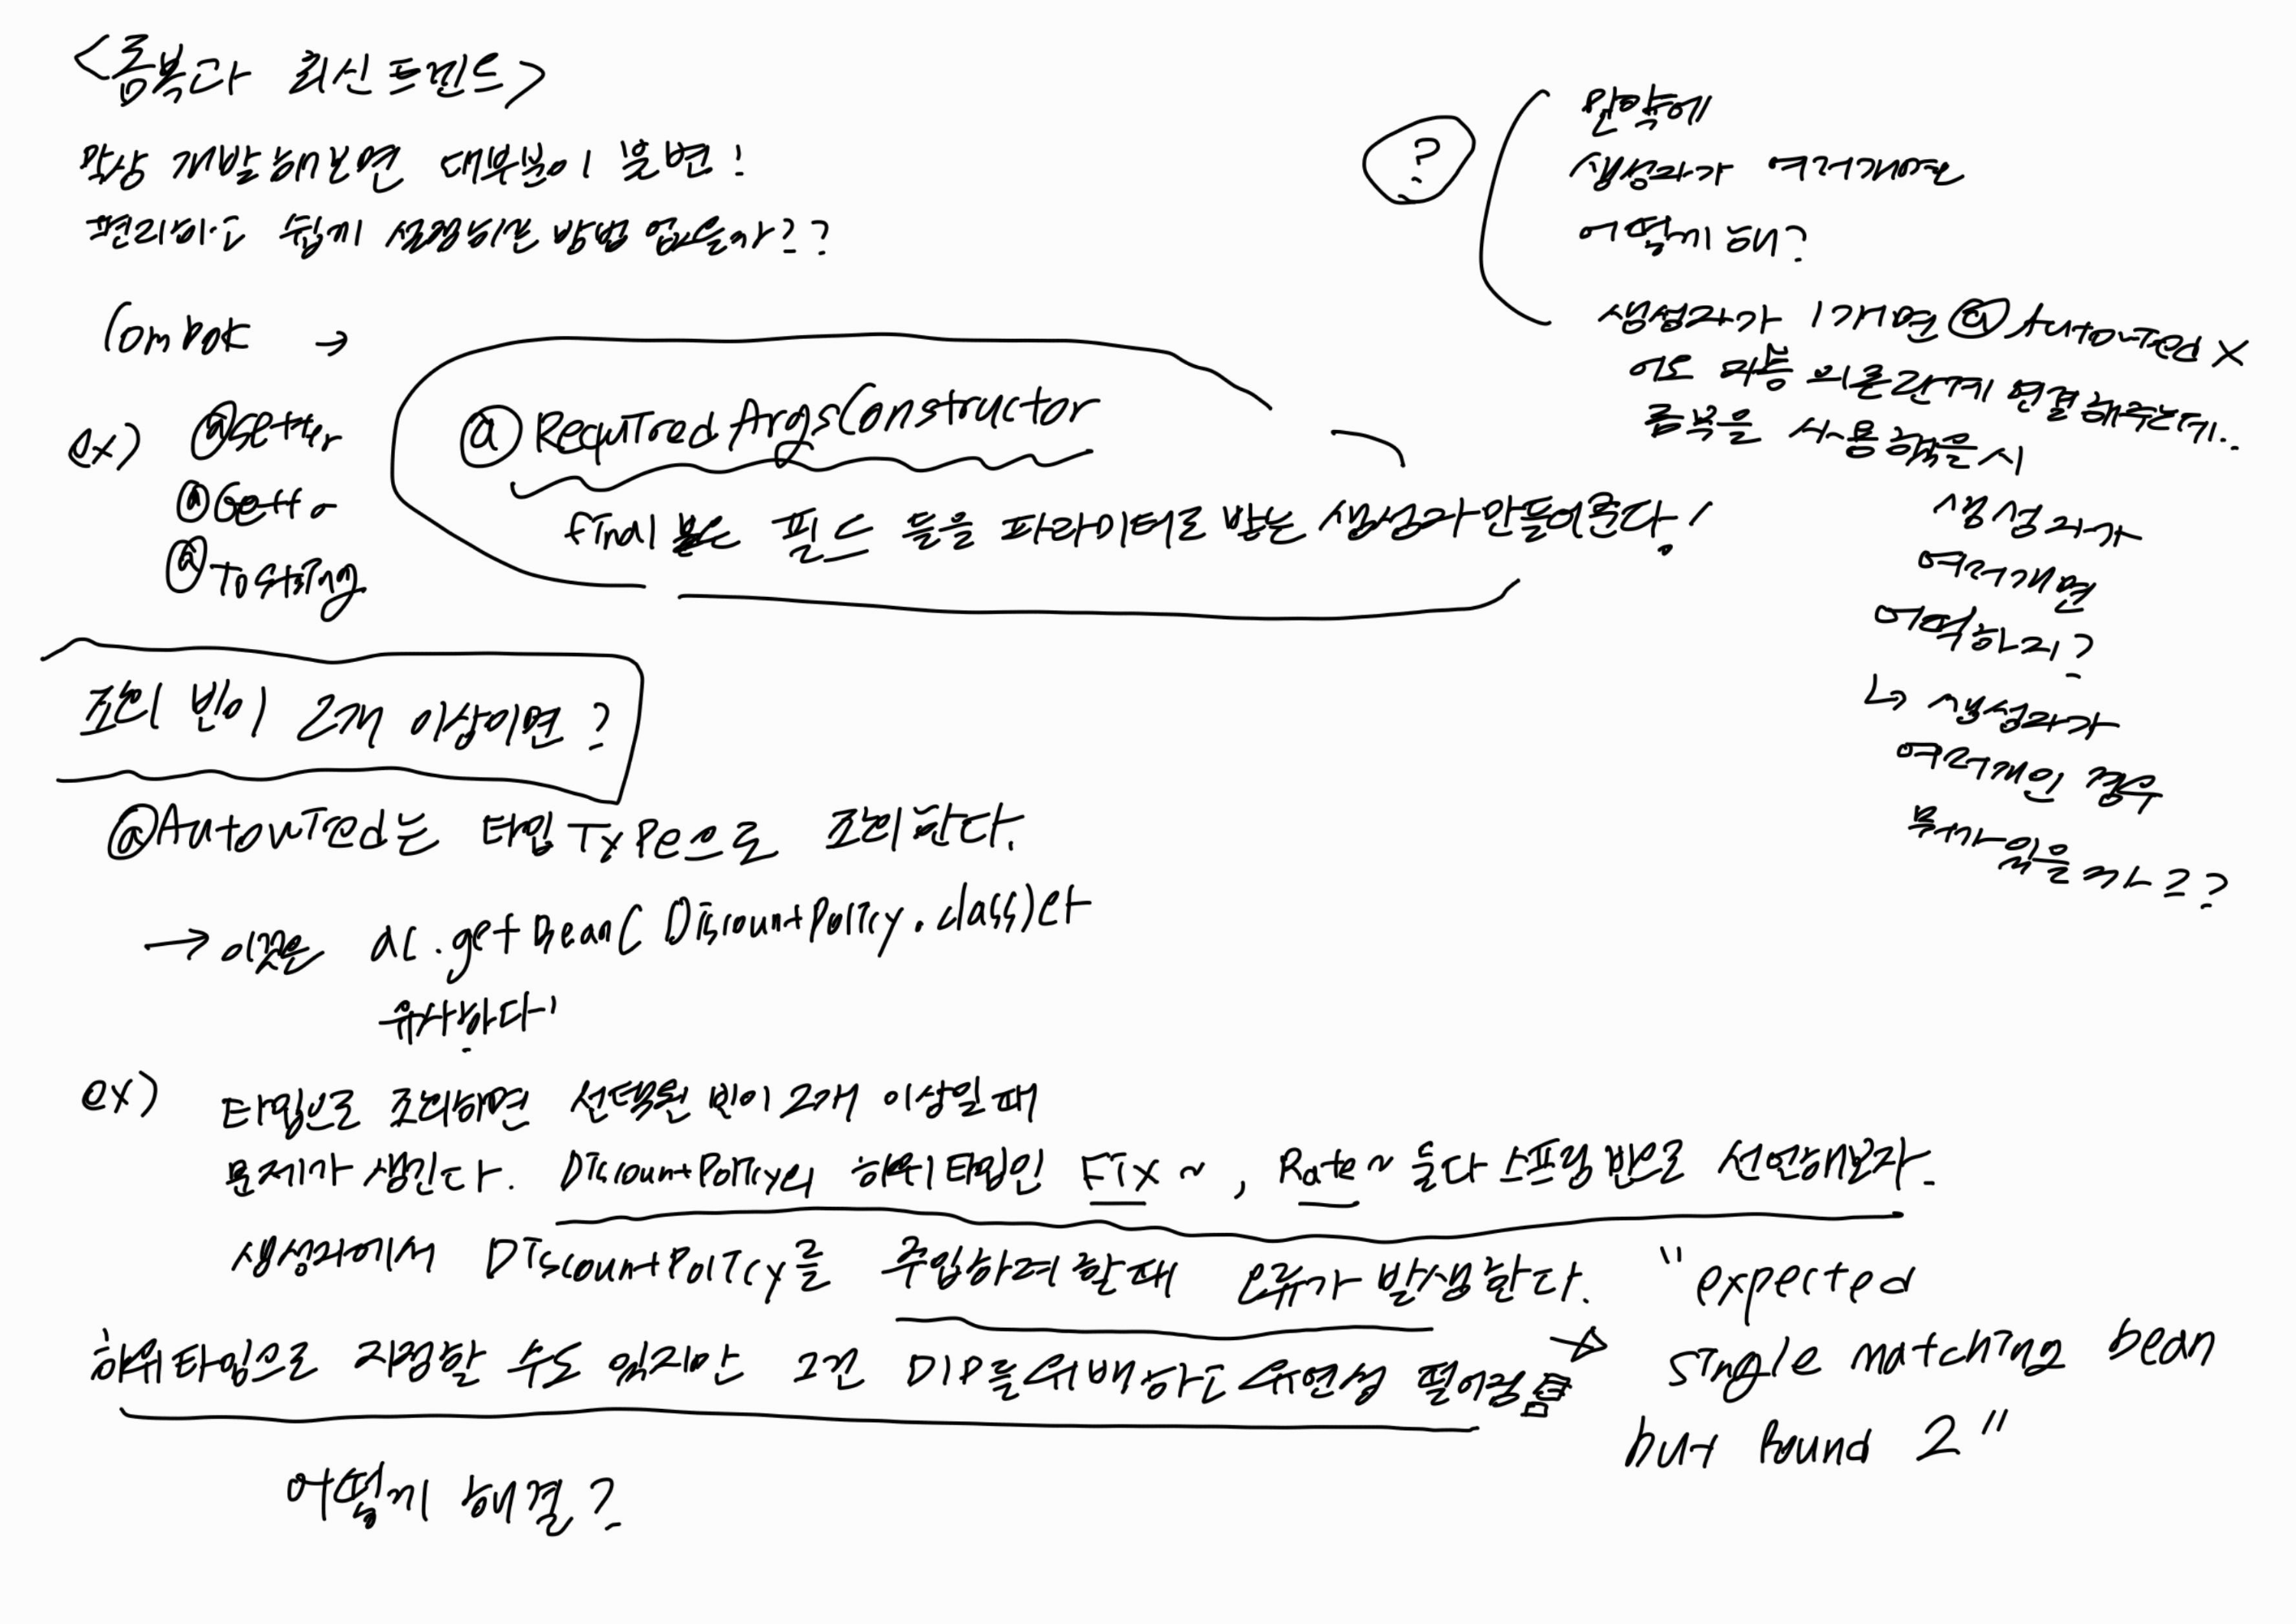 <롬복과 최신트렌드>
막상 개발해보면 대부분이 불변!
편리하고 쉽게 설정하는 방법 없을까??
Lombok →
ex) @Setter
@Getter
@ToString
@RequiredArgsConstructor
final 붙은 필드 들을 파라미터로 받는 생성자 만들어준다!
?
만약에
생성자가 여러개면
어떻게 해?
생성자가 1개면 @Autowired X
여도 자동 의존관계 연결해주는데..
롬복을 사용했을시
생성자가
여러개면
어떡하리?
↳ 생성자가
여러개인 경우
뭐가 있을까??
조회 빈이 2개 이상이면?
@Autowired는 타입 Type으로 조회한다.
→ 이것은 ac.getBean(DiscountPolicy.class)와
유사하다
ex) 타입으로 조회하면 선택된 빈이 2개 이상일때
문제가 생긴다. DiscountPolicy의 하위타입인 Fix~, Rate~ 둘다 스프링 빈으로 선언해보자.
생성자에서 DiscountPolicy를 주입하려 할때 오류가 발생한다. "expected
single matching bean
but found 2"
하위타입으로 지정할 수도 있지만 그건 DIP를 위배하고 유연성 떨어짐
어떻게 해결?